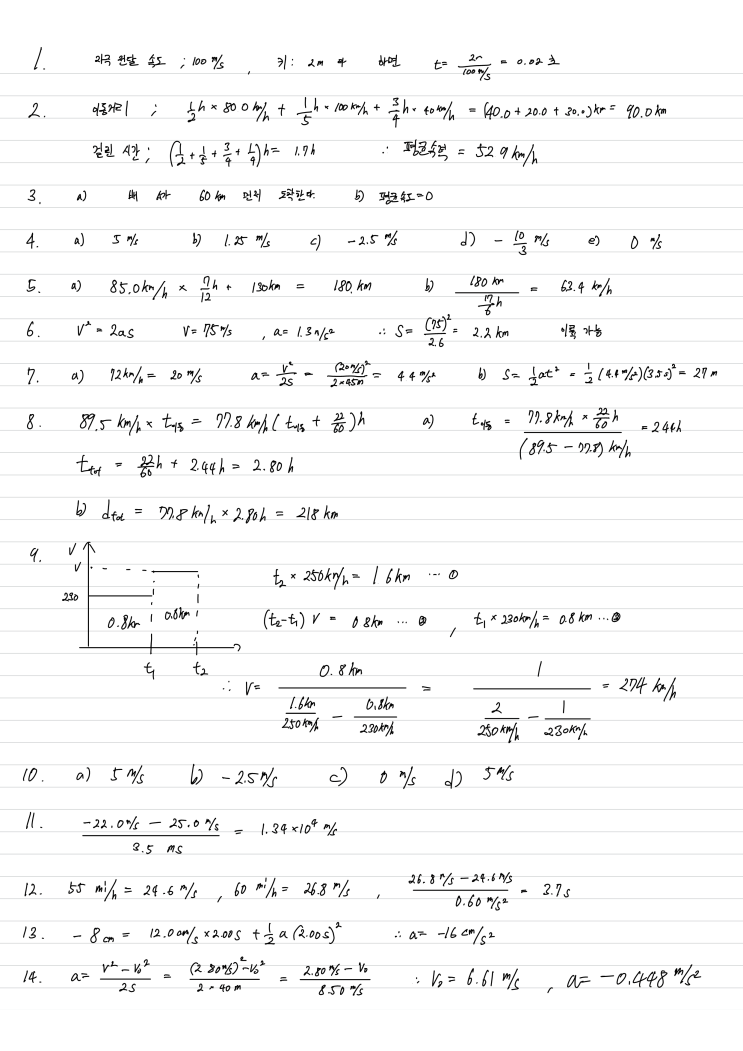 1. 자극 전달 속도 ; 100 m/s , 키 : 2m 라 하면 t = 2m / 100 m/s = 0.02 초
2. 이동거리 ; 1/2 h × 80.0 km/h + 1/5 h × 100 km/h + 3/4 h × 40 km/h = (40.0 + 20.0 + 30.0) km = 90.0 km
걸린 시간 ; (1/2 + 1/5 + 3/4 + 1/4) h = 1.7 h ∴ 평균속력 = 52.9 km/h
3. a) 배 60 km 먼저 도착한다. b) 평균속도 = 0
4. a) 5 m/s b) 1.25 m/s c) -2.5 m/s d) - 10/3 m/s e) 0 m/s
5. a) 85.0 km/h × 7/12 h + 130 km = 180. km b) 180 km / (17/6 h) = 63.4 km/h
6. V² = 2as V = 75 m/s , a = 1.3 m/s² ∴ S = (75)² / 2.6 = 2.2 km 이륙 가능
7. a) 72 km/h = 20 m/s a = V²/2S = (20 m/s)² / 2×45m = 4.4 m/s² b) S = 1/2 at² = 1/2 (4.4 m/s²)(3.5 s)² = 27 m
8. 89.5 km/h × t이동 = 77.8 km/h (t이동 + 22/60) h a) t이동 = 77.8 km/h × 22/60 h / (89.5 - 77.8) km/h = 2.44h
t tot = 22/60 h + 2.44 h = 2.80 h
b) d tot = 77.8 km/h × 2.80 h = 218 km
9. V
V
t₂ × 250 km/h = 1.6 km ··· ①
230
0.8km 0.8km (t₂-t₁) V = 0.8km ··· ② , t₁ × 230 km/h = 0.8 km ··· ③
t₁ t₂
∴ V = 0.8 km / (1.6km / 250 km/h - 0.8km / 230 km/h) = 1 / (2 / 250 km/h - 1 / 230 km/h) = 274 km/h
10. a) 5 m/s b) -2.5 m/s c) 0 m/s d) 5 m/s
11. -22.0 m/s - 25.0 m/s / 3.5 ms = 1.34 × 10⁴ m/s
12. 55 mi/h = 24.6 m/s , 60 mi/h = 26.8 m/s , 26.8 m/s - 24.6 m/s / 0.60 m/s² = 3.7 s
13. -8 cm = 12.0 cm/s × 2.00 s + 1/2 a (2.00 s)² ∴ a = -16 cm/s²
14. a = V² - V₀² / 2S = (2.80 m/s)² - V₀² / 2 × 40 m = 2.80 m/s - V₀ / 8.50 m/s ∴ V₀ = 6.61 m/s , a = -0.448 m/s²